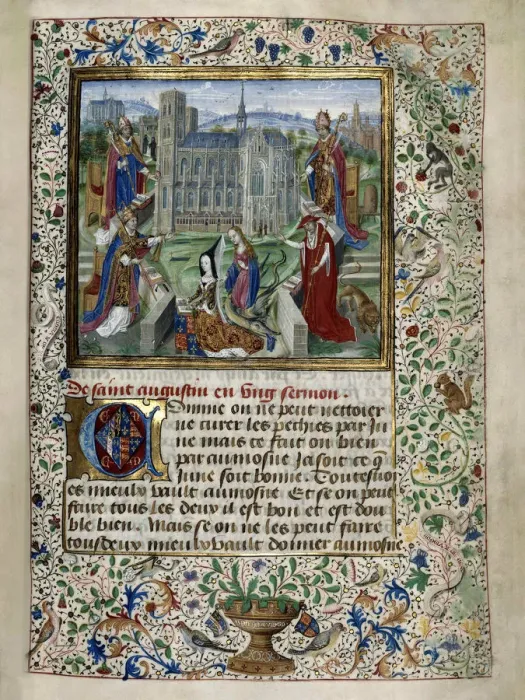 De saint augustin en ung sermon.
Comme on ne peut nettoier
ne curer les pechies par Ju
ne mais ce fait on bien
par aumosne Ja soit ce q̃
June soit bonne. Toutesuoi
es mieulx vault aumosne. Et se on peut
faire tous les deux il est bon et est dou
ble bien. Mais se on ne les peut faire
tousdeux mieulx vault donner aumosne